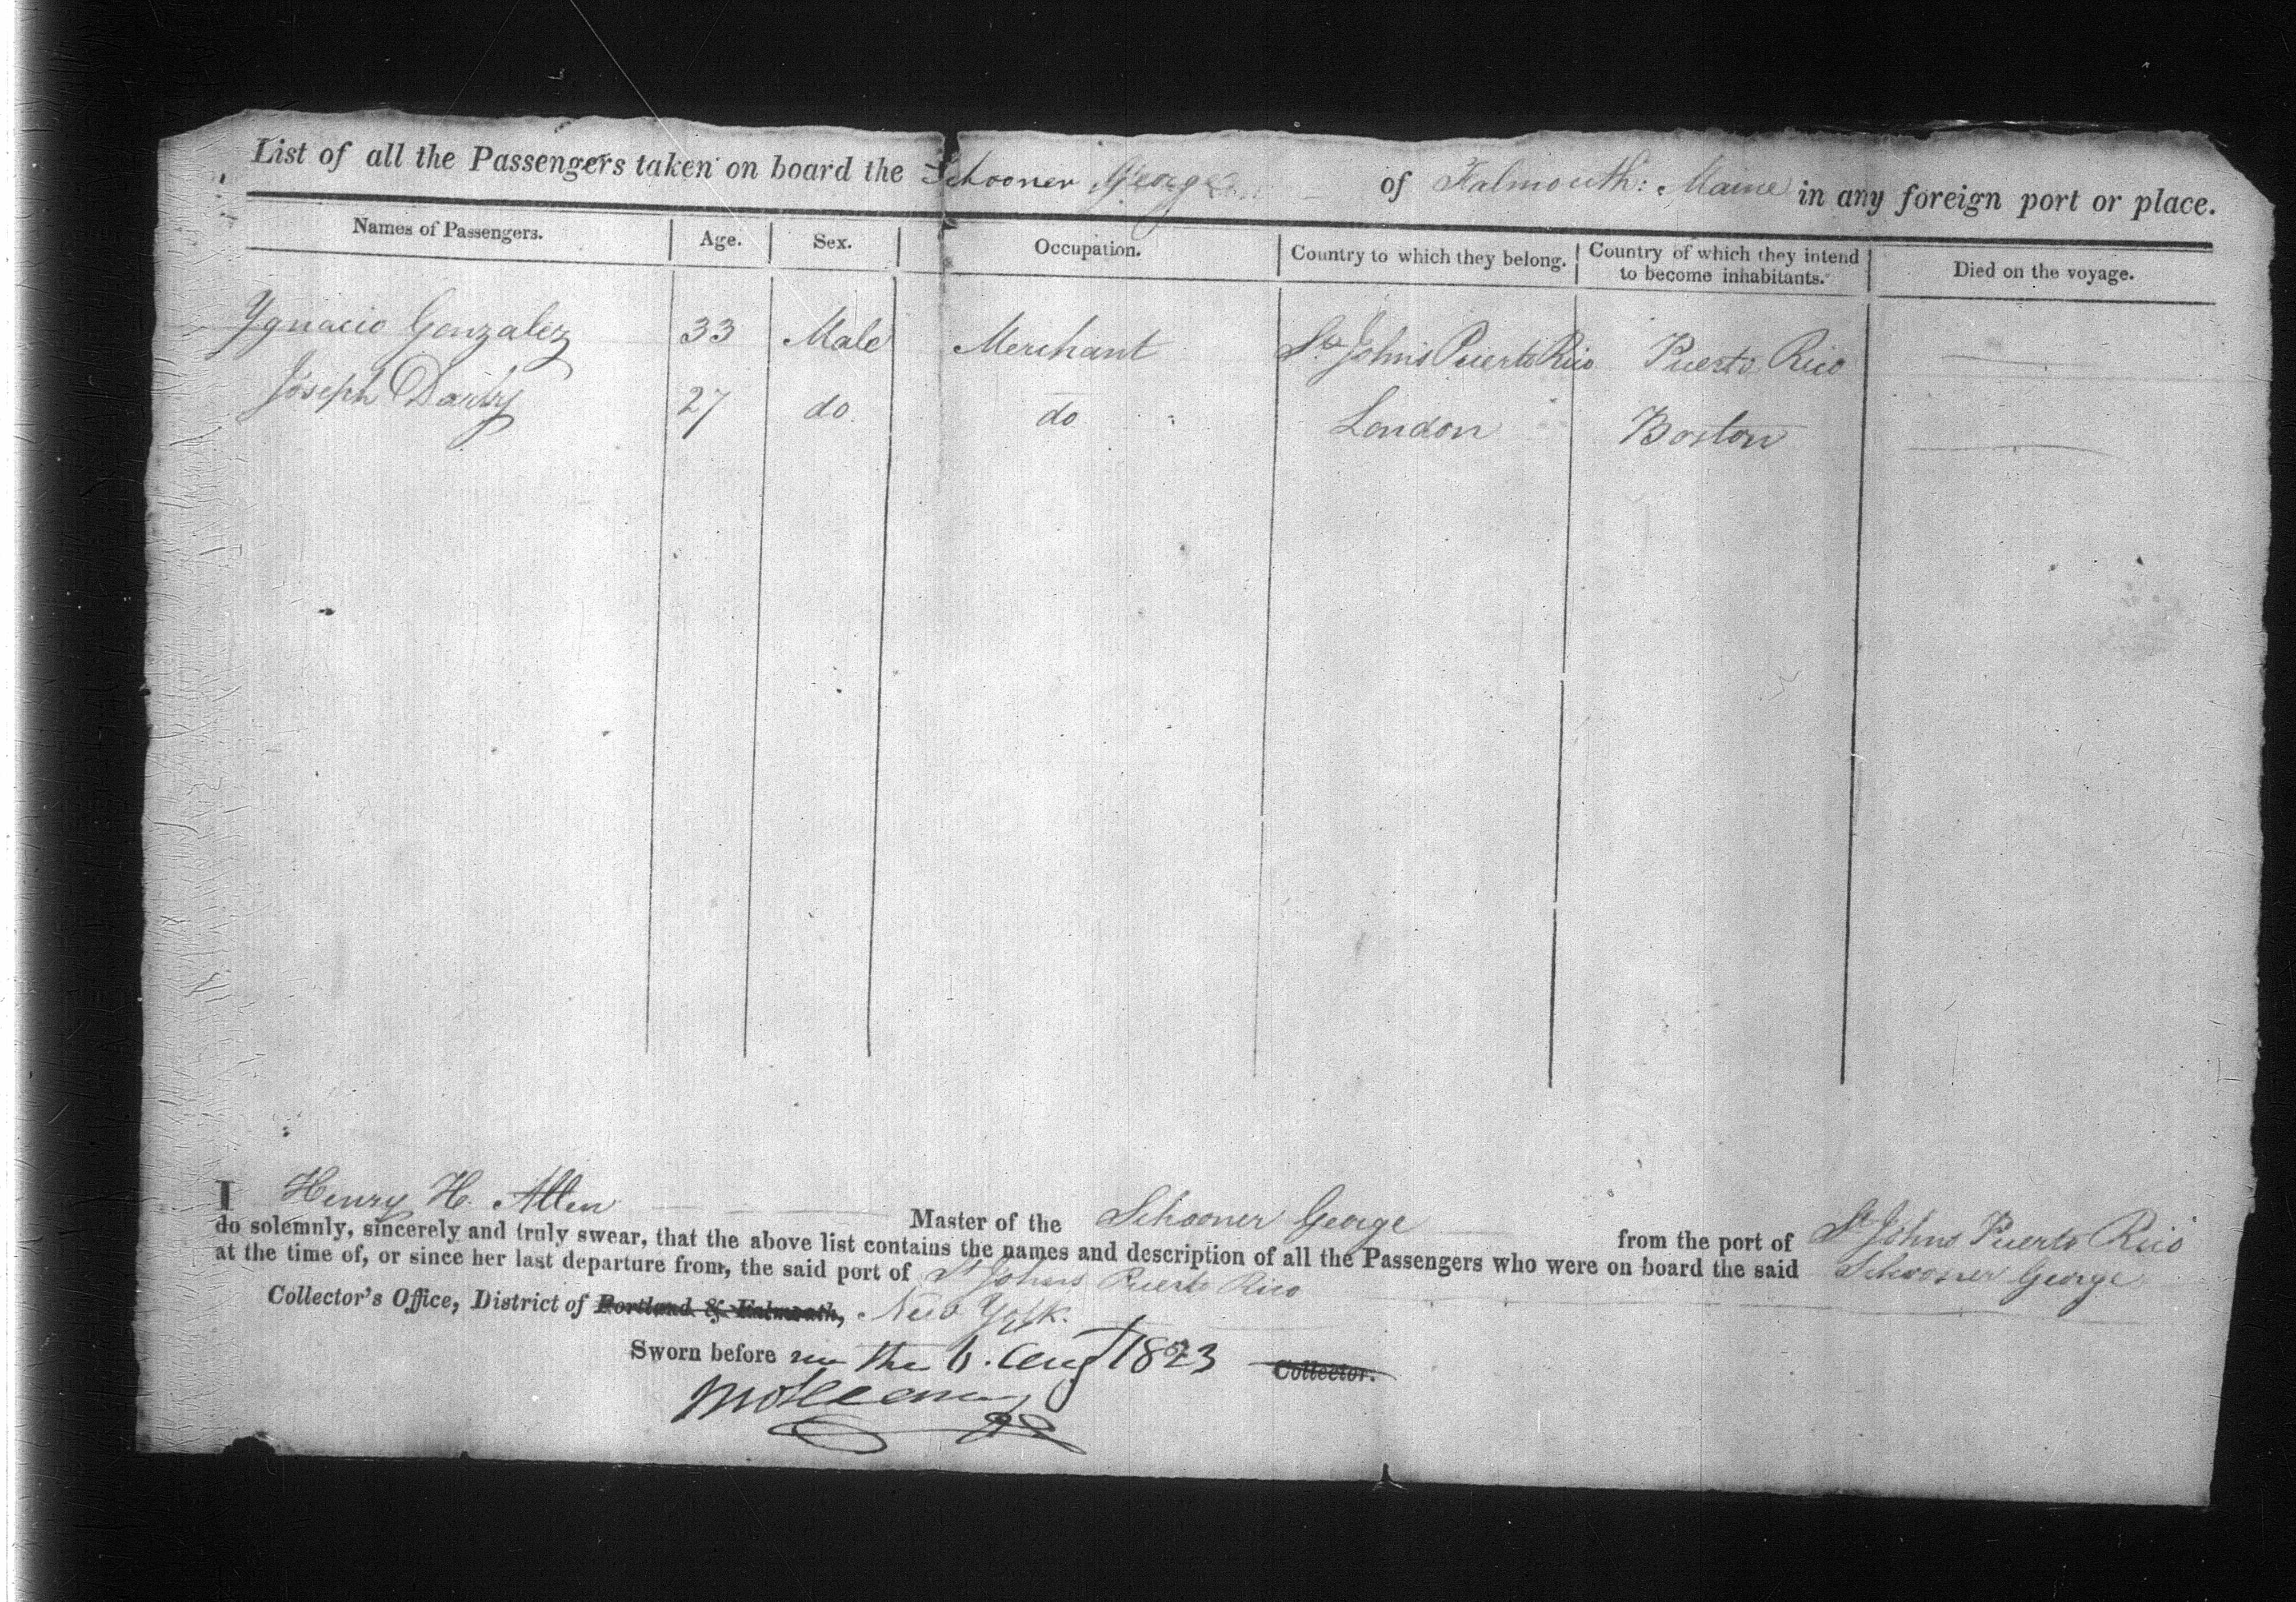 List of all the Passengers taken on board the Schooner George of Falmouth: Maine in any foreign port or place.
Names of Passengers. Age. Sex. Occupation. Country to which they belong. Country of which they intend to become inhabitants. Died on the voyage.
Ygnacio Gonzalez 33 Male Merchant St. Johns Puerto Rico Puerto Rico
Joseph Darby 27 do do London Boston
I Henry H. Allen Master of the Schooner George from the port of St Johns Puerto Rico
do solemnly, sincerely and truly swear, that the above list contains the names and description of all the Passengers who were on board the said Schooner George
at the time of, or since her last departure from, the said port of St Johns Puerto Rico
Collector's Office, District of Portland & Falmouth, New York.
Sworn before me the 6. Aug 1823 Collector.